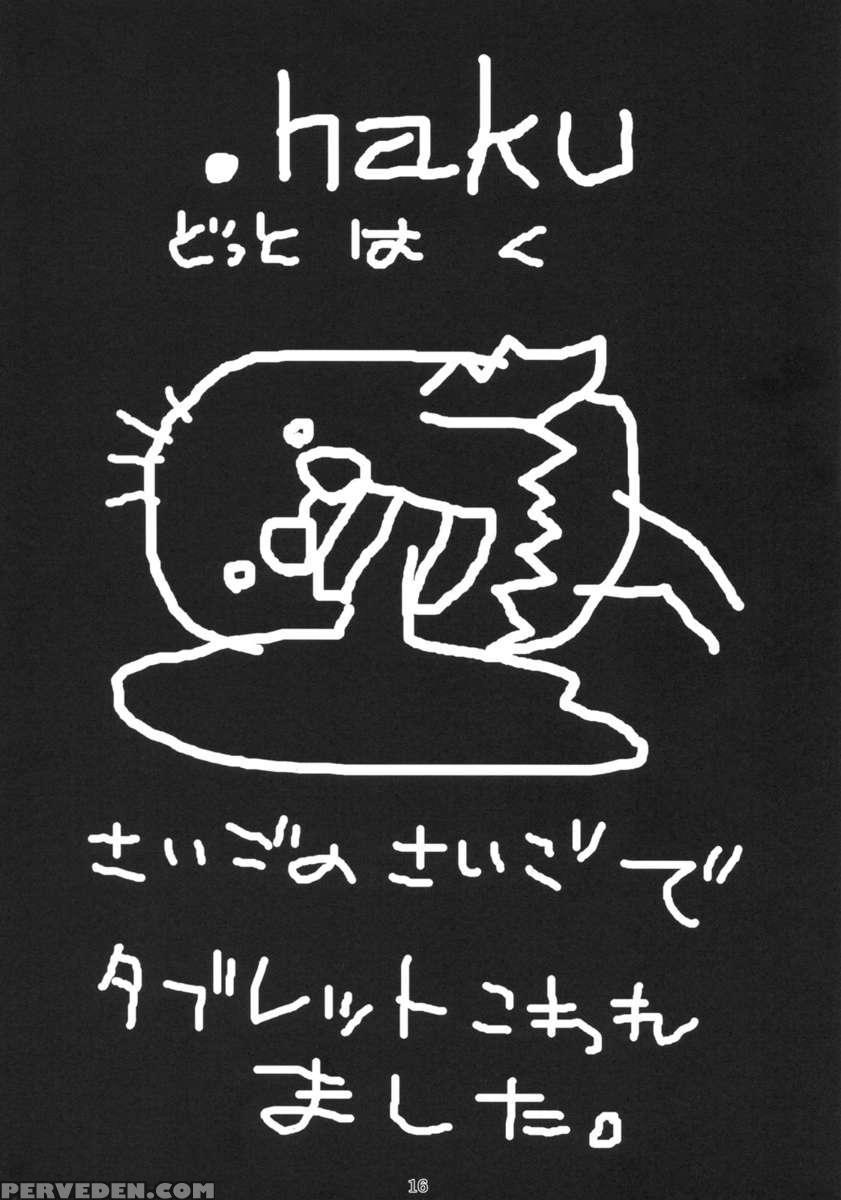 .haku
どっと はく
さいごの さいごで
タブレット こわれ
ました。
16
PERVEDEN.COM